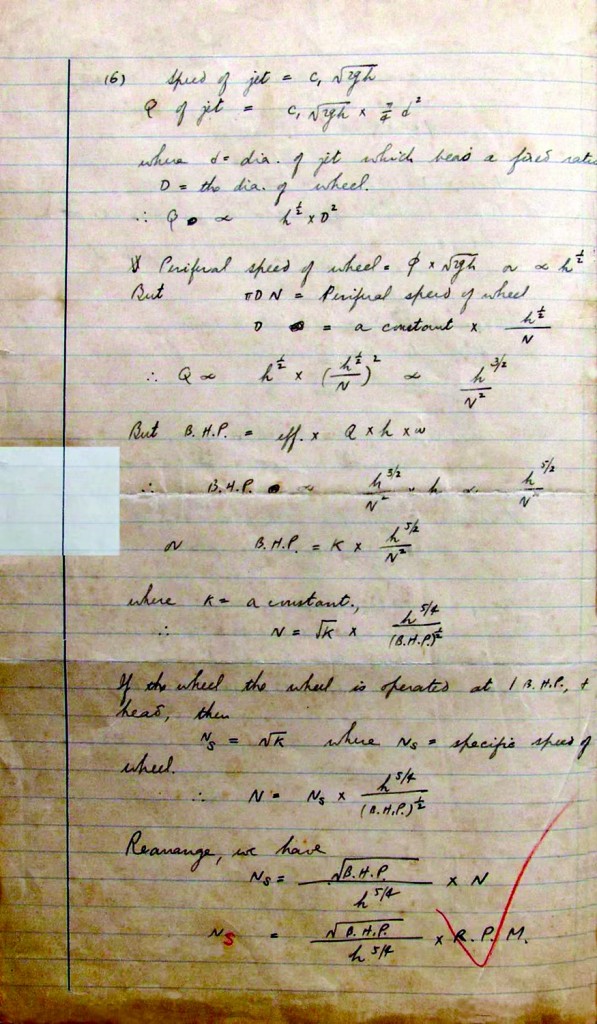 (6) Speed of jet = C₁ √2gh
Q of jet = C₁ √2gh × π/4 d²
where d = dia. of jet which bears a fixed ratio
D = the dia. of wheel.
∴ Q ∝ h^½ × D²
Periferal speed of wheel = φ × √2gh or ∝ h^½
But πDN = Periferal speed of wheel
D = a constant × h^½/N
∴ Q ∝ h^½ × (h^½/N)² ∝ h^3/2/N²
But B.H.P. = eff. × Q × h × w
∴ B.H.P. ∝ h^3/2/N² × h ∝ h^5/2/N²
or B.H.P. = K × h^5/2/N²
where K = a constant.,
∴ N = √K × h^5/4/(B.H.P.)^½
If the wheel the wheel is operated at 1 B.H.P., +
head, then
N_s = √K where N_s = specific speed of
wheel.
∴ N = N_s × h^5/4/(B.H.P.)^½
Rearrange, we have
N_s = √B.H.P./h^5/4 × N
N_s = √B.H.P./h^5/4 × R.P.M.